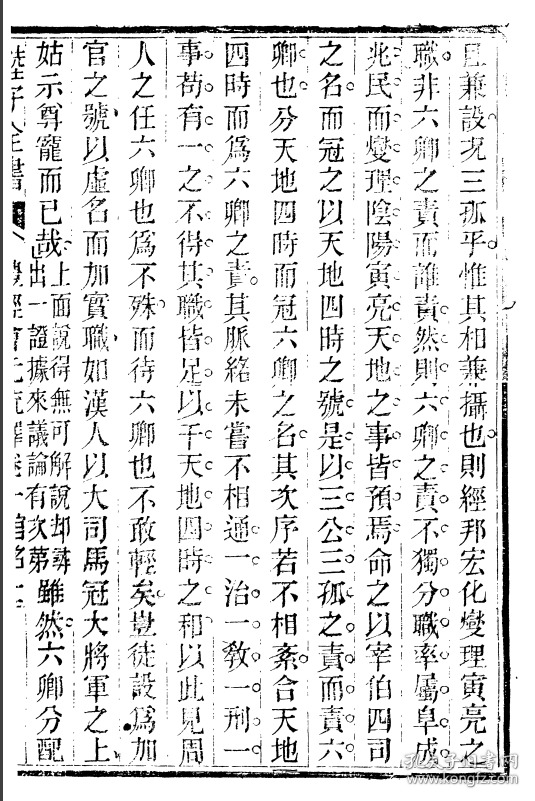 且兼設况三孤乎惟其相兼攝也則經邦宏化燮理寅亮之
職非六卿之責而誰責然則六卿之責不獨分職率屬阜成
兆民而燮理陰陽寅亮天地之事皆預焉命之以宰伯四司
之名而冠之以天地四時之號是以三公三孤之責而責六
卿也分天地四時而冠六卿之名其次序若不相紊合天地
四時而爲六卿之責其脈絡未嘗不相通一治一教一刑一
事苟有一之不得其職皆足以干天地四時之和以此見周
人之任六卿也爲不殊而待六卿也不敢輕矣豈徒設爲加
官之號以虛名而加實職如漢人以大司馬冠大將軍之上
姑示尊寵而已哉上面說得無可解說却尋
出一證據來議論有次第雖然六卿分配
禮經會元疏釋卷一官名
孔夫子旧书网
www.kongfz.com